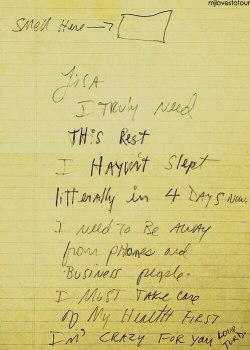 mjlovestotour
Smell Here
Lisa
I Truly Need
THis Rest
I HAVYiNT Slept
litterally in 4 DAYS Now.
I need to Be AwAy
from phones and
Business people.
I MUST TAKe care
of My HeAlth FirST
I'M CRAZY FOR You
Love
Turd